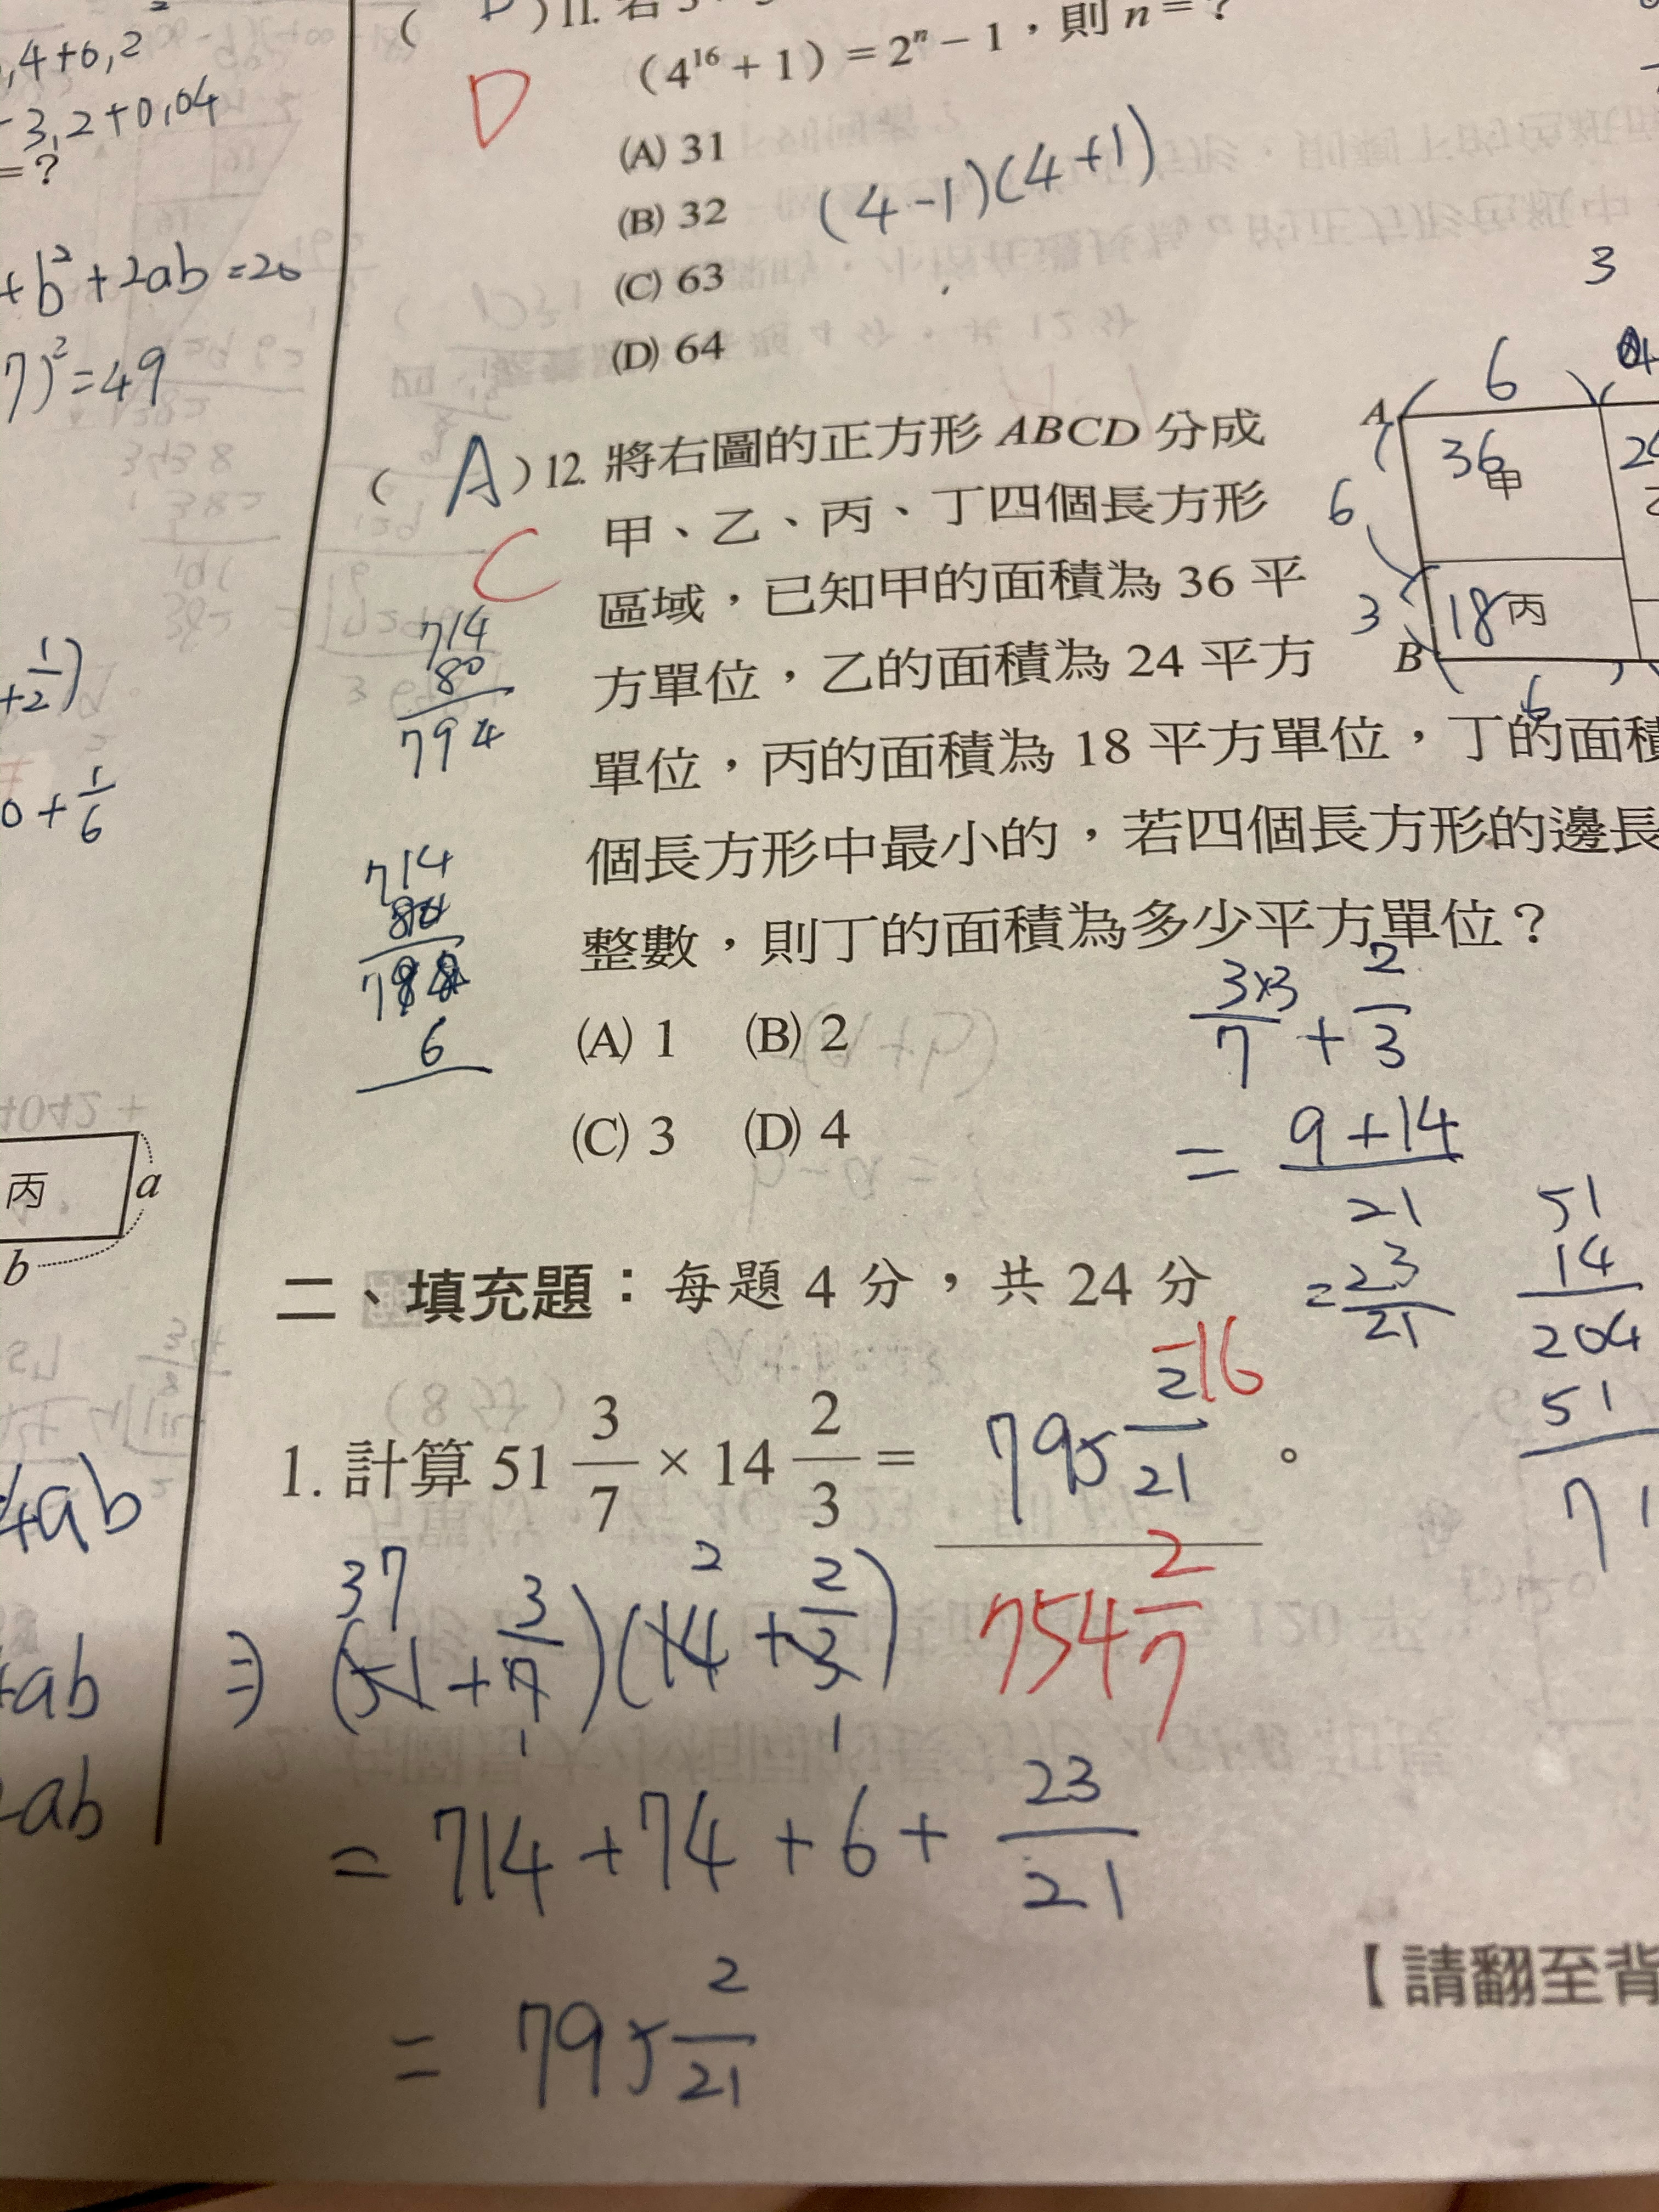 ,4+0,2²
-3,2+0,04
=?
+b²+2ab=20
7)²=49
+1/2)
0+1/6
丙
a
b
4ab
ab
ab
( )11. 若
(4¹⁶+1)=2ⁿ-1,則 n=?
D
(A) 31
(B) 32
(C) 63
(D) 64
(4-1)(4+1)
( A )12. 將右圖的正方形 ABCD 分成
C
甲、乙、丙、丁四個長方形
區域,已知甲的面積為 36 平
方單位,乙的面積為 24 平方
單位,丙的面積為 18 平方單位,丁的面積
個長方形中最小的,若四個長方形的邊長
整數,則丁的面積為多少平方單位?
(A) 1 (B) 2
(C) 3 (D) 4
3
6
A
36
甲
6
3
18 丙
B
6
714
80
794
714
6
3×3/7 + 2/3
= 9+14/21
= 23/21
51
14
204
51
71
二、填充題:每題 4 分,共 24 分
1. 計算 51 3/7 × 14 2/3 = 795 2/21 。
-16
754 2/7
37 2
⇒ (51 + 3/7)(14 + 2/3)
1 1
= 714 + 74 + 6 + 23/21
= 795 2/21
【請翻至背